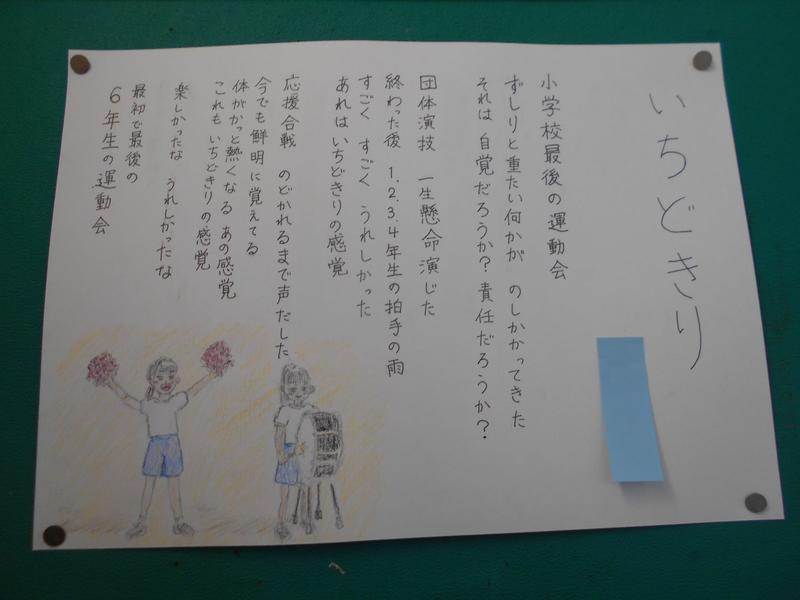 いちどきり
小学校最後の運動会
ずしりと重たい何かが のしかかってきた
それは 自覚だろうか? 責任だろうか?
団体演技 一生懸命演じた
終わった後 1.2.3.4年生の拍手の雨
すごく すごく うれしかった
あれは いちどきりの感覚
応援合戦 のどかれるまで声だした
今でも鮮明に覚えてる
体がかっと熱くなる あの感覚
これも いちどきりの感覚
楽しかったな うれしかったな
最初で最後の
6年生の運動会